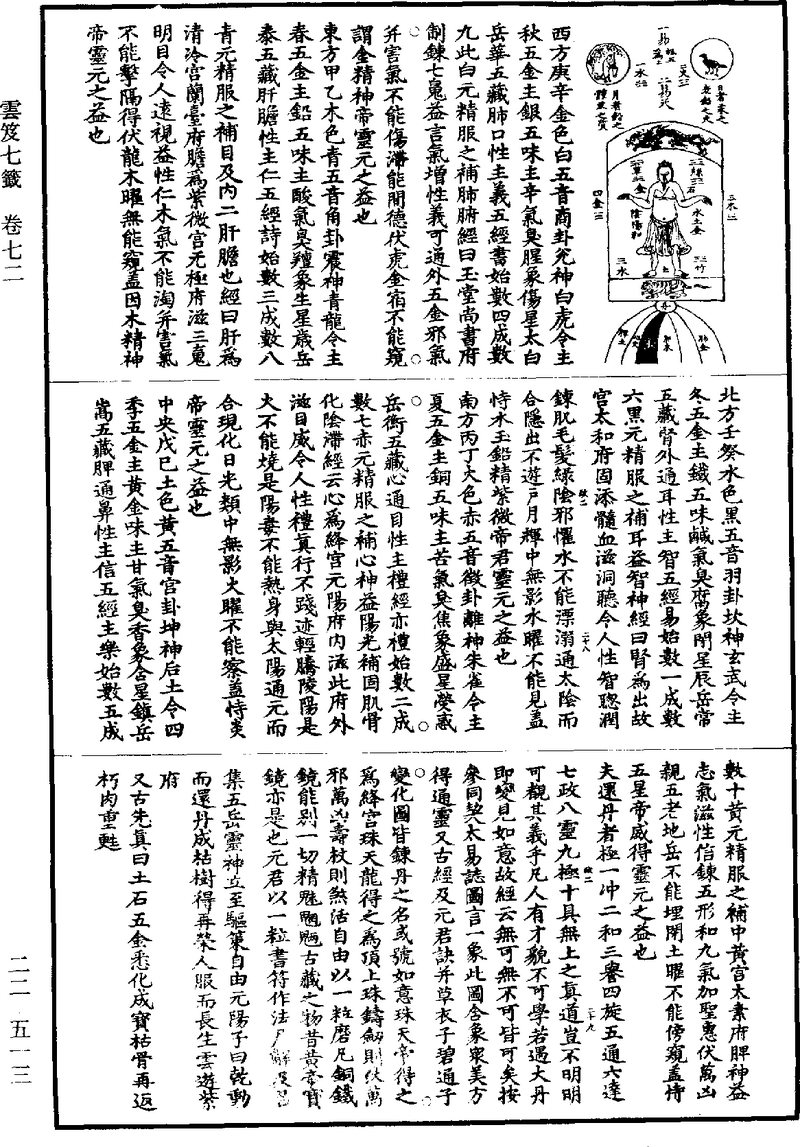 雲笈七籤 卷七二
二二 五一三
西方庚辛金色白五音商卦兊神白虎令主
秋五金主銀五味主辛氣臭腥象傷星太白
岳華五藏肺口性主義五經書始數四成數
九此白元精服之補肺腑經曰玉堂尚書府
制鍊七䰟益言氣增性義可通外五金邪氣
并害氣不能傷滯能開德伏虎金宿不能窺
謂金精神帝靈元之益也
東方甲乙木色青五音角卦震神青龍令主
春五金主鉛五味主酸氣臭羶象生星歲岳
泰五藏肝膽性主仁五經詩始數三成數八
青元精服之補目及內二肝膽也經曰肝爲
清泠宮蘭臺府膽爲紫微宮无極府滋三䰟
明目令人遠視益性仁木氣不能淘并害氣
不能擊隔得伏龍木曜無能窺蓋因木精神
帝靈元之益也
北方壬癸水色黑五音羽卦坎神玄武令主
冬五金主鐵五味鹹氣臭腐象閉星辰岳常
五藏腎外通耳性主智五經易始數一成數
六黑元精服之補耳益智神經曰腎爲出故
宮太和府固添髓血滋洞聽令人性智聰潤
鍊肌毛髮綠陰邪懼水不能漂溺通太陰而
合隱出不遊戸月輝中無影水曜不能見蓋
恃水玉鉛精紫微帝君靈元之益也
南方丙丁火色赤五音徵卦離神朱雀令主
夏五金主銅五味主苦氣臭焦象盛星熒惑
岳衡五藏心通目性主禮經亦禮始數二成
數七赤元精服之補心神益陽光補固肌骨
化陰滯經云心爲絳宮元陽府內滋此府外
滋目威令人性禮眞行不踐迹輕騰陵陽是
火不能燒是陽毒不能熱身與太陽通元而
合現化日光類中無影火曜不能察蓋恃炎
帝靈元之益也
中央戊己土色黃五音宮卦坤神后土令四
季五金主黃金味主甘氣臭香象含星鎮岳
嵩五藏脾通鼻性主信五經主樂始數五成
數十黃元精服之補中黃宮太素府脾神益
志氣滋性信鍊五形和九氣加聖惠伏萬凶
親五老地岳不能埋閉土曜不能傍窺蓋恃
五星帝威得靈元之益也
夫還丹者極一冲二和三礜四旋五通六達
七政八靈九極十具無上之真道豈不明明
可觀其義乎凡人有才貌不可學若遇大丹
即變見如意故經云無可無不可皆可矣按
參同契太易誌圖言一象此圖含象衆美方
得通靈又古經及元君訣并草衣子碧通子
變化圖皆鍊丹之名或號如意珠天帝得之
爲絳宮珠天龍得之爲頂上珠鑄劒則伏萬
邪萬凶壽杖則煞活自由以一粒磨凡銅鐵
鏡能別一切精魅魍魎古藏之物昔黃帝寶
鏡亦是也元君以一粒書符作法
集五岳靈神立至驅策自由元陽子曰乾動
而還丹成枯樹得再榮人服而長生雲遊紫
府
又古先真曰土石五金悉化成寶枯骨再返
朽肉重甦